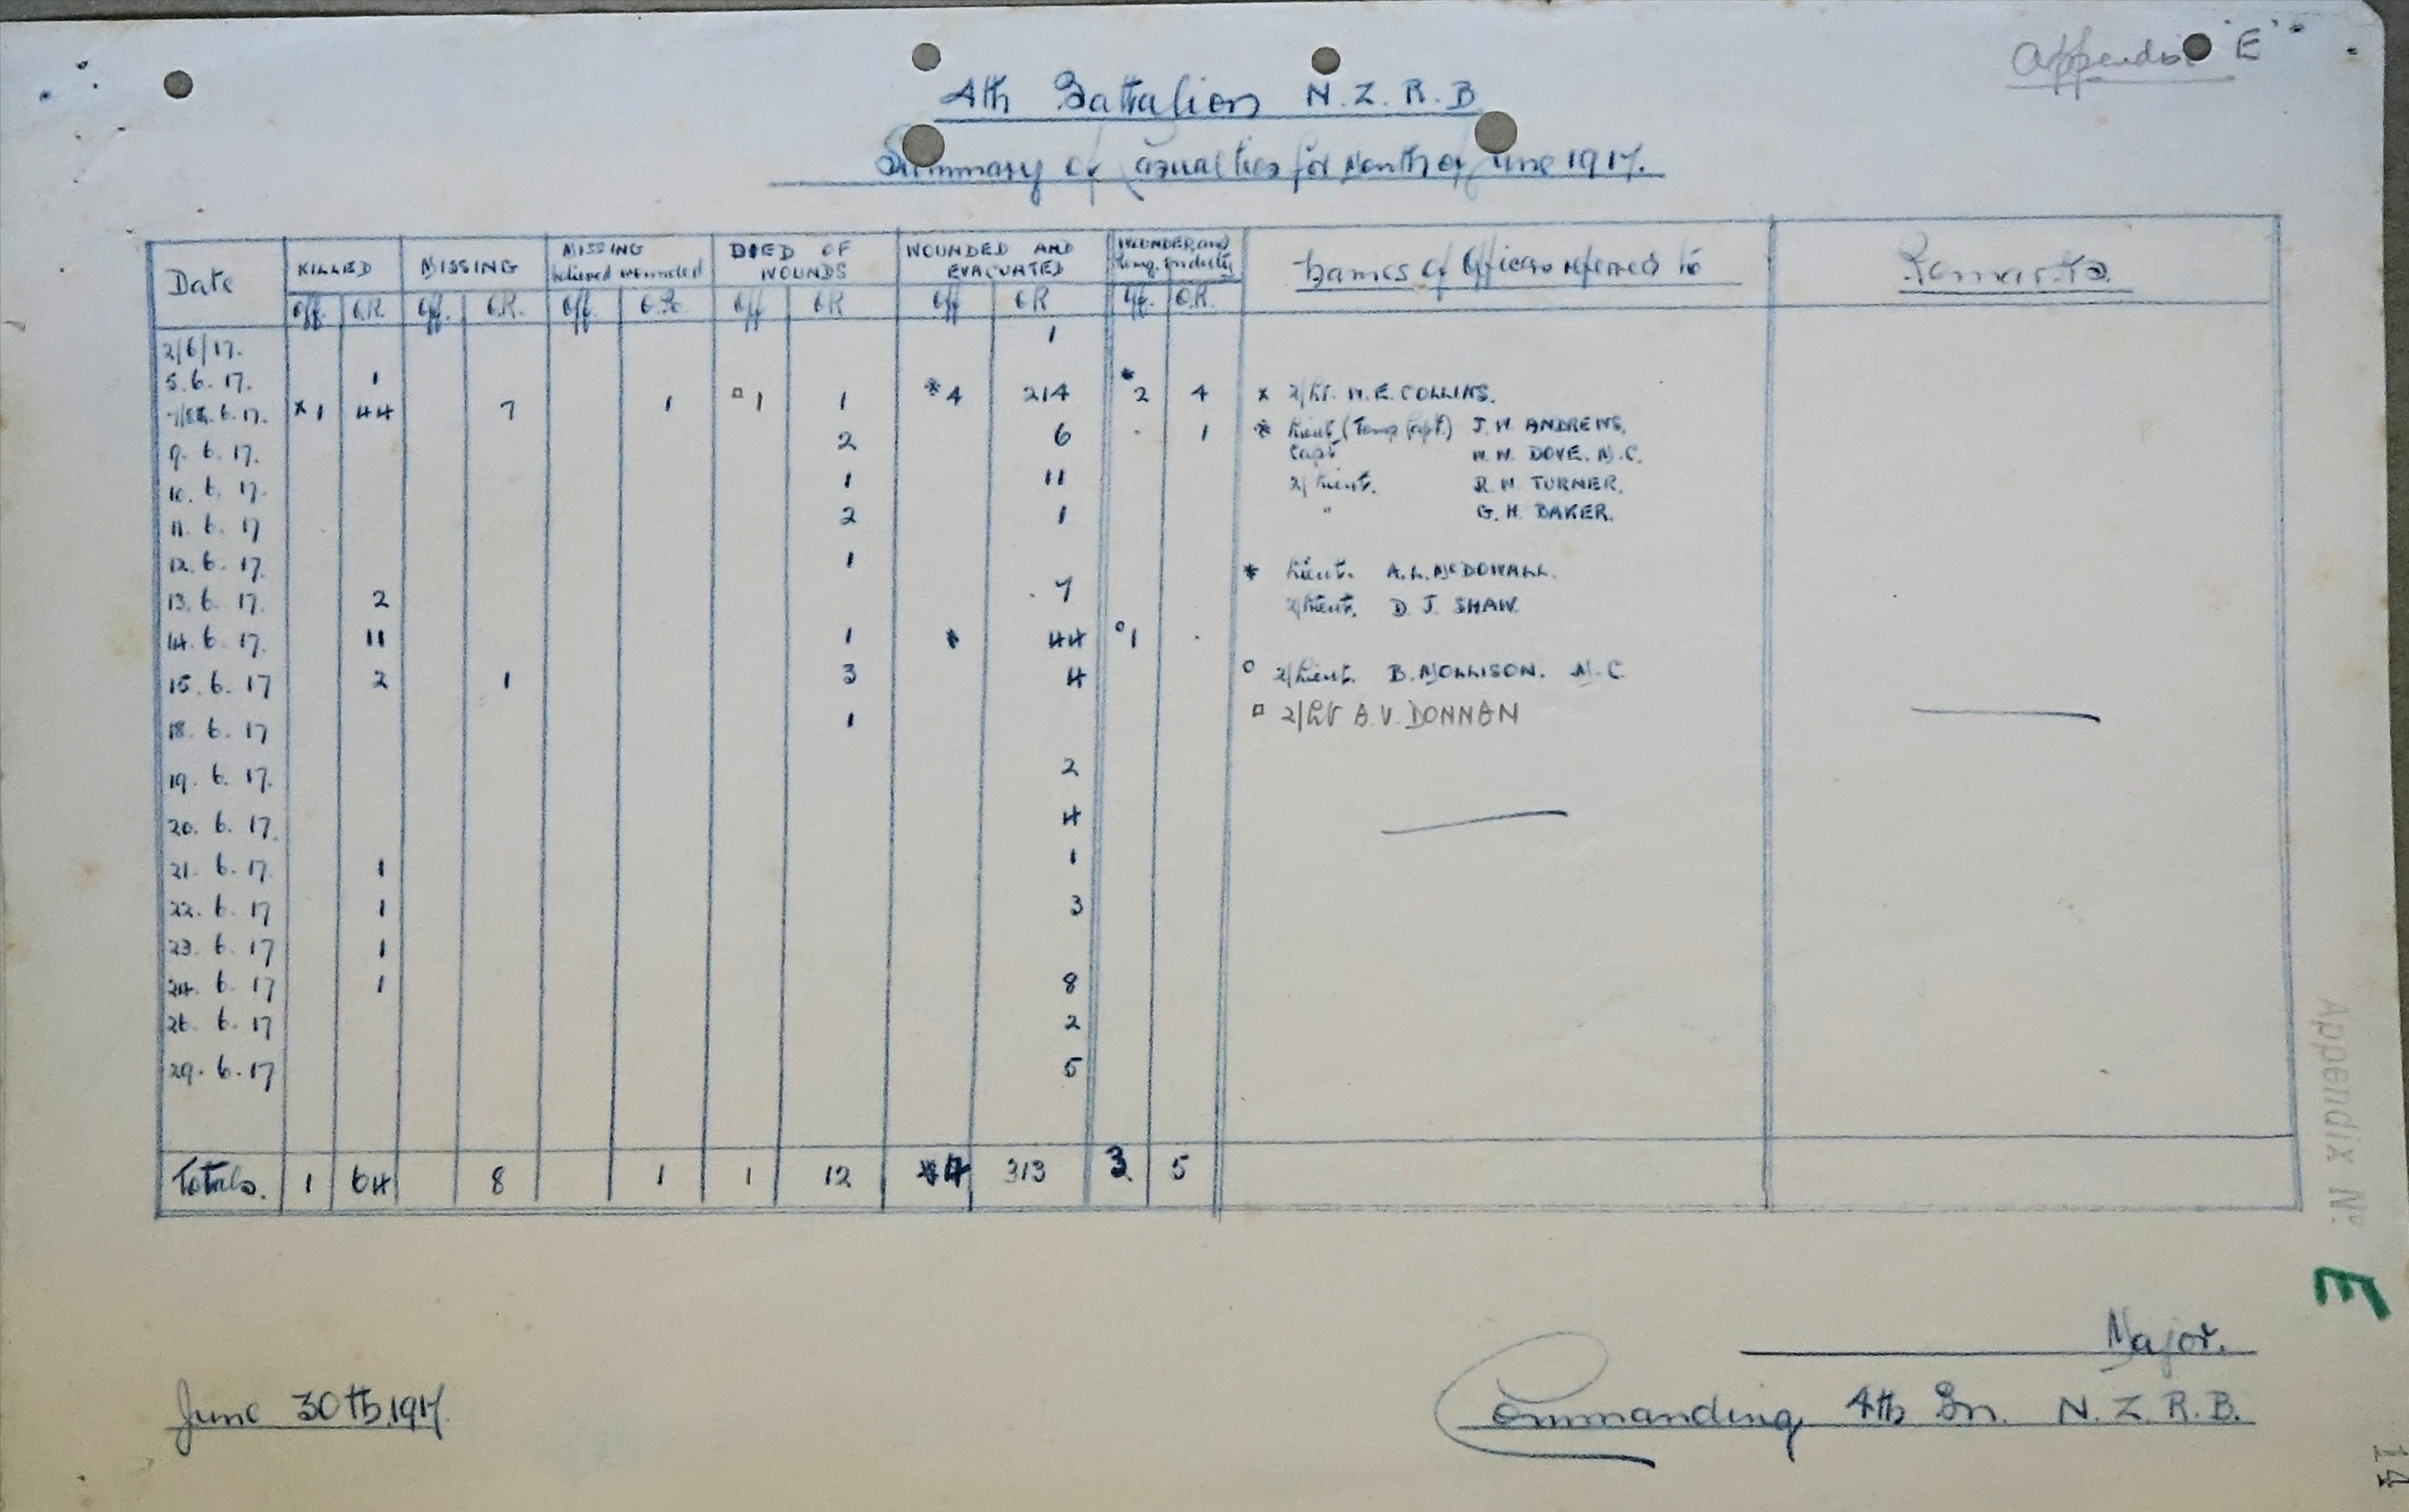 Appendix "E"
4th Battalion N.Z.R.B
Summary of Casualties for Month of June 1917.
Date KILLED MISSING MISSING believed wounded DIED OF WOUNDS WOUNDED AND EVACUATED WOUNDED and Remg. on duty Names of Officers referred to Remarks.
Off. O.R. Off. O.R. Off. O.R. Off O.R Off O.R Off. O.R.
2/6/17. 1
5.6.17. 1
7/8.6.17. x 1 44 7 1 □ 1 1 * 4 214 * 2 4 x 2/Lt. W.E. COLLINS.
9.6.17. 2 6 1 * Lieut (Temp Capt.) J.W. ANDREWS.
Capt W.W. DOVE. M.C.
10.6.17. 1 11 2/Lieut. R.H. TURNER.
11.6.17 2 1 " G.H. BAKER.
12.6.17. 1 * Lieut. A.L. McDOWALL.
13.6.17. 2 7 2/Lieut. D.J. SHAW.
14.6.17. 11 1 44 o 1
15.6.17 2 1 3 4 o 2/Lieut. B. MOLLISON. M.C
18.6.17 1 □ 2/Lt A.V. DONNAN
19.6.17. 2
20.6.17. 4
21.6.17. 1 1
22.6.17 1 3
23.6.17 1
24.6.17 1 8
26.6.17 2
29.6.17 5
Totals. 1 64 8 1 1 12 4 313 3. 5
Appendix No.
E
Major.
June 30th, 1917.
Commanding 4th Bn. N.Z.R.B.
14